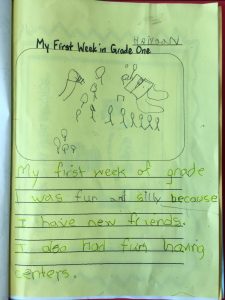 Heivaan
My First Week in Grade One
My first week of grade
1 was fun and silly because
I have new friends.
I also had fun having
centers.